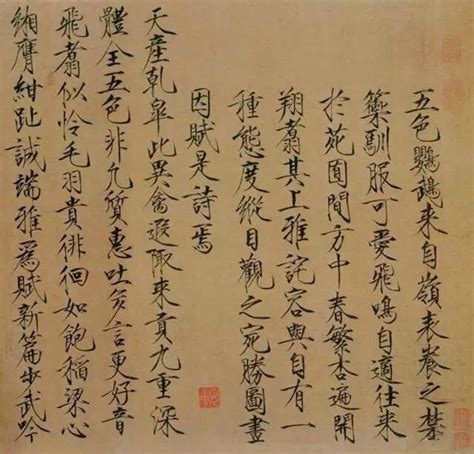 五色鸚鵡來自嶺表養之禁
籞馴服可愛飛鳴自適往來
於苑囿間方中春繁杏遍開
翔翥其上雅詫容與自有一
種態度縱目觀之宛勝圖畫
因賦是詩焉
天產乾皐此異禽遐陬來貢九重深
體全五色非凡質惠吐多言更好音
飛翥似怜毛羽貴徘徊如飽稻粱心
緗膺紺趾誠端雅爲賦新篇步武吟